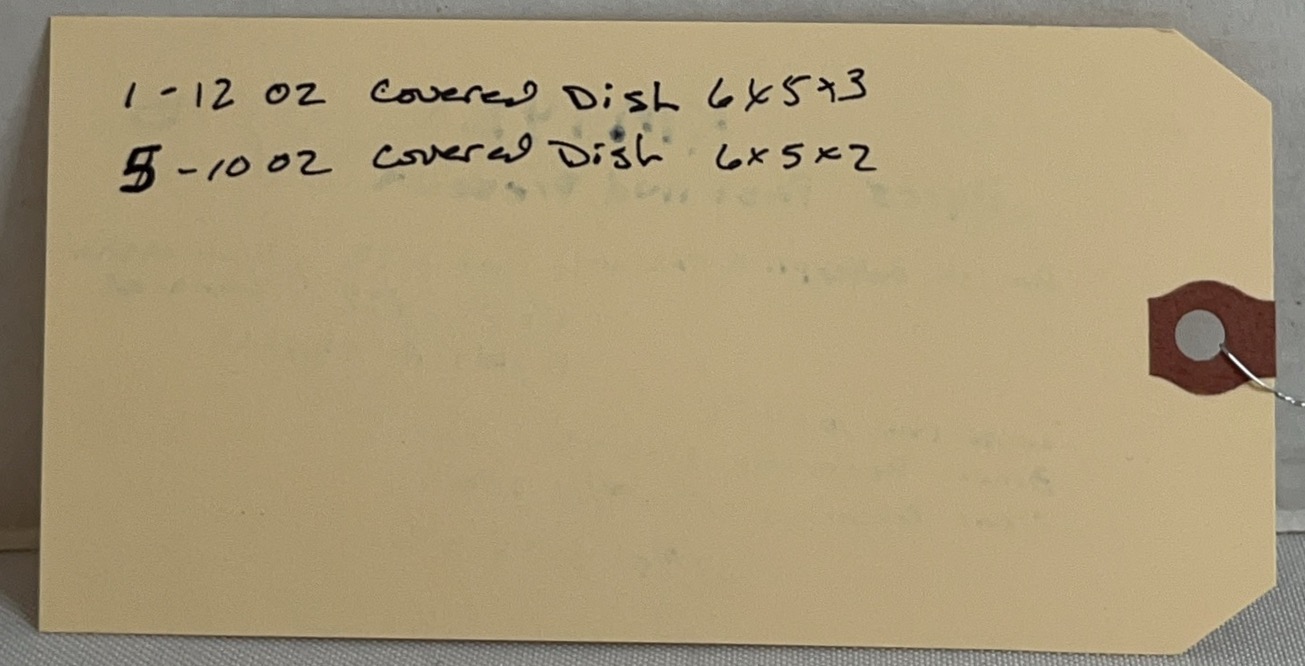 1 - 12 oz Covered Dish 6x5x3
5 - 10 oz Covered Dish 6x5x2